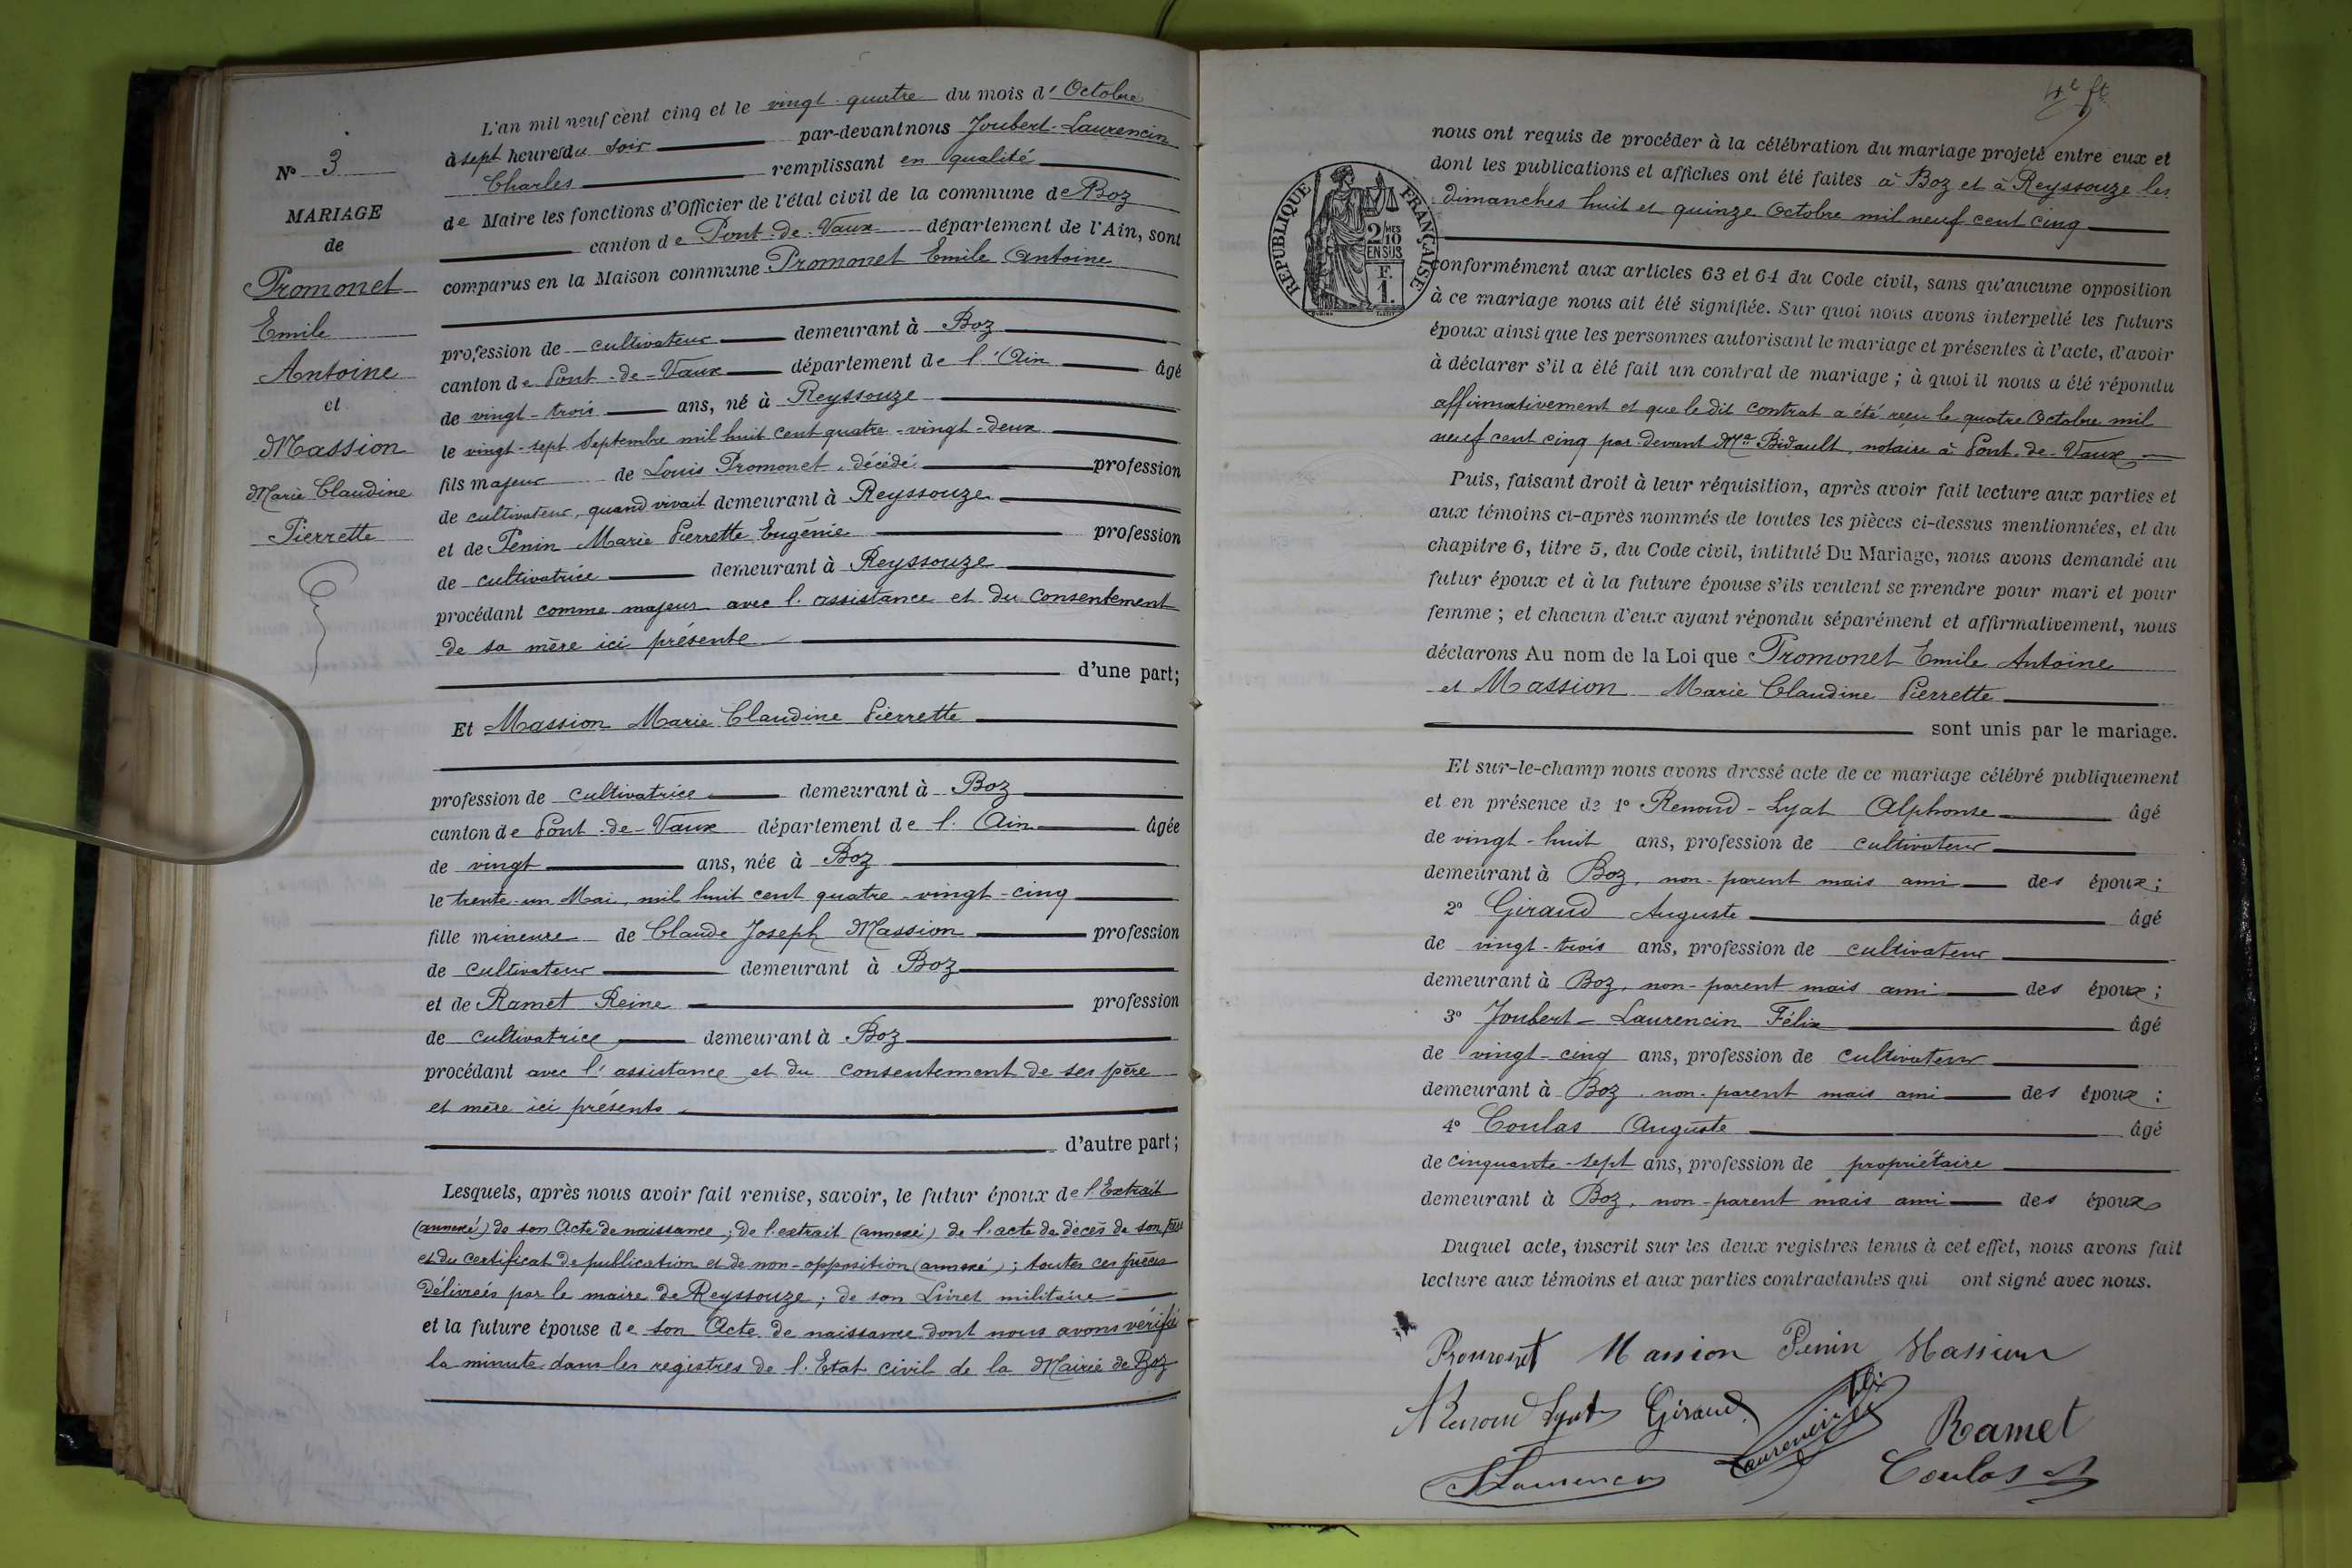 N° 3
MARIAGE
de
Promonet
Emile
Antoine
et
Massion
Marie Claudine
Pierrette
L'an mil neuf cent cinq et le vingt-quatre du mois d'Octobre
à sept heures du soir par-devant nous Joubert-Laurencin
Charles remplissant en qualité
de Maire les fonctions d'Officier de l'état civil de la commune de Boz
canton de Pont-de-Vaux département de l'Ain, sont
comparus en la Maison commune Promonet Emile Antoine
profession de cultivateur demeurant à Boz
canton de Pont-de-Vaux département de l'Ain âgé
de vingt-trois ans, né à Reyssouze
le vingt-sept Septembre mil huit cent quatre-vingt-deux
fils majeur de Louis Promonet, décédé profession
de cultivateur, quand vivait demeurant à Reyssouze
et de Penin Marie Pierrette Eugénie profession
de cultivatrice demeurant à Reyssouze
procédant comme majeur avec l'assistance et du consentement
de sa mère ici présente
d'une part;
Et Massion Marie Claudine Pierrette
profession de cultivatrice demeurant à Boz
canton de Pont-de-Vaux département de l'Ain âgée
de vingt ans, née à Boz
le trente-un Mai, mil huit cent quatre-vingt-cinq
fille mineure de Claude Joseph Massion profession
de cultivateur demeurant à Boz
et de Ramet Reine profession
de cultivatrice demeurant à Boz
procédant avec l'assistance et du consentement de ses père
et mère ici présents
d'autre part;
Lesquels, après nous avoir fait remise, savoir, le futur époux de l'Extrait
(annexé) de son Acte de naissance; de l'extrait (annexé) de l'acte de décès de son père
et du certificat de publication et de non-opposition (annexé); toutes ces pièces
délivrées par le maire de Reyssouze; de son Livret militaire
et la future épouse de son Acte de naissance dont nous avons vérifié
la minute dans les registres de l'Etat civil de la Mairie de Boz
RÉPUBLIQUE FRANÇAISE
2/10 MES
EN SUS
F.
1.
nous ont requis de procéder à la célébration du mariage projeté entre eux et
dont les publications et affiches ont été faites à Boz et à Reyssouze les
dimanches huit et quinze Octobre mil neuf cent cinq
conformément aux articles 63 et 64 du Code civil, sans qu'aucune opposition
à ce mariage nous ait été signifiée. Sur quoi nous avons interpellé les futurs
époux ainsi que les personnes autorisant le mariage et présentes à l'acte, d'avoir
à déclarer s'il a été fait un contrat de mariage; à quoi il nous a été répondu
affirmativement et que le dit contrat a été reçu le quatre Octobre mil
neuf cent cinq par-devant Me Bidault, notaire à Pont-de-Vaux
Puis, faisant droit à leur réquisition, après avoir fait lecture aux parties et
aux témoins ci-après nommés de toutes les pièces ci-dessus mentionnées, et du
chapitre 6, titre 5, du Code civil, intitulé Du Mariage, nous avons demandé au
futur époux et à la future épouse s'ils veulent se prendre pour mari et pour
femme; et chacun d'eux ayant répondu séparément et affirmativement, nous
déclarons Au nom de la Loi que Promonet Emile Antoine
et Massion Marie Claudine Pierrette
sont unis par le mariage.
Et sur-le-champ nous avons dressé acte de ce mariage célébré publiquement
et en présence de 1° Renoud-Lyat Alphonse âgé
de vingt-huit ans, profession de cultivateur
demeurant à Boz, non-parent mais ami des époux;
2° Giraud Auguste âgé
de vingt-trois ans, profession de cultivateur
demeurant à Boz, non-parent mais ami des époux;
3° Joubert-Laurencin Félix âgé
de vingt-cinq ans, profession de cultivateur
demeurant à Boz, non-parent mais ami des époux;
4° Coulas Auguste âgé
de cinquante-sept ans, profession de propriétaire
demeurant à Boz, non-parent mais ami des époux
Duquel acte, inscrit sur les deux registres tenus à cet effet, nous avons fait
lecture aux témoins et aux parties contractantes qui ont signé avec nous.
Promonet Massion Penin Massion
Renoud Lyat Giraud Laurencin Félix Ramet
Laurencin Coulas